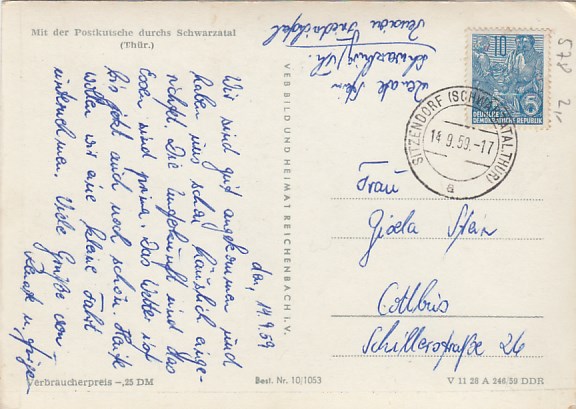 Mit der Postkutsche durchs Schwarzatal
(Thür.)
den, 14.9.59
Wir sind gut angekommen und
haben uns schon häuslich einge-
richtet. Die Unterkunft und das
Essen sind prima. Das Wetter ist
bis jetzt auch noch schön. Heute
wollen wir eine kleine Fahrt
unternehmen. Viele Grüße von
Renate u.
Renate Stein
Schwarzburg/Th.
Pension Friedrichstal
VEB BILD UND HEIMAT REICHENBACH I. V.
10
5
DEUTSCHE
DEMOKRATISCHE REPUBLIK
SITZENDORF (SCHWARZATAL, THÜR)
14.9.59.-17
a
578
2,-
Frau
Gisela Stein
Cottbus
Schillerstraße 26
Verbraucherpreis -,25 DM
Best. Nr. 10/1053
V 11 28 A 246/59 DDR